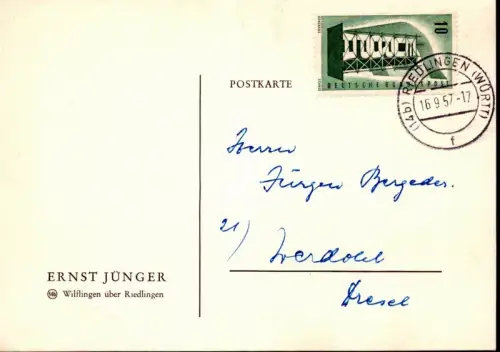 POSTKARTE
10
DEUTSCHE BUNDESPOST
(14b) RIEDLINGEN (WÜRTT)
16.9.57-17
f
Herrn
Jürgen Bergeder.
21) Werdohl
Dresel
ERNST JÜNGER
14b Wilflingen über Riedlingen